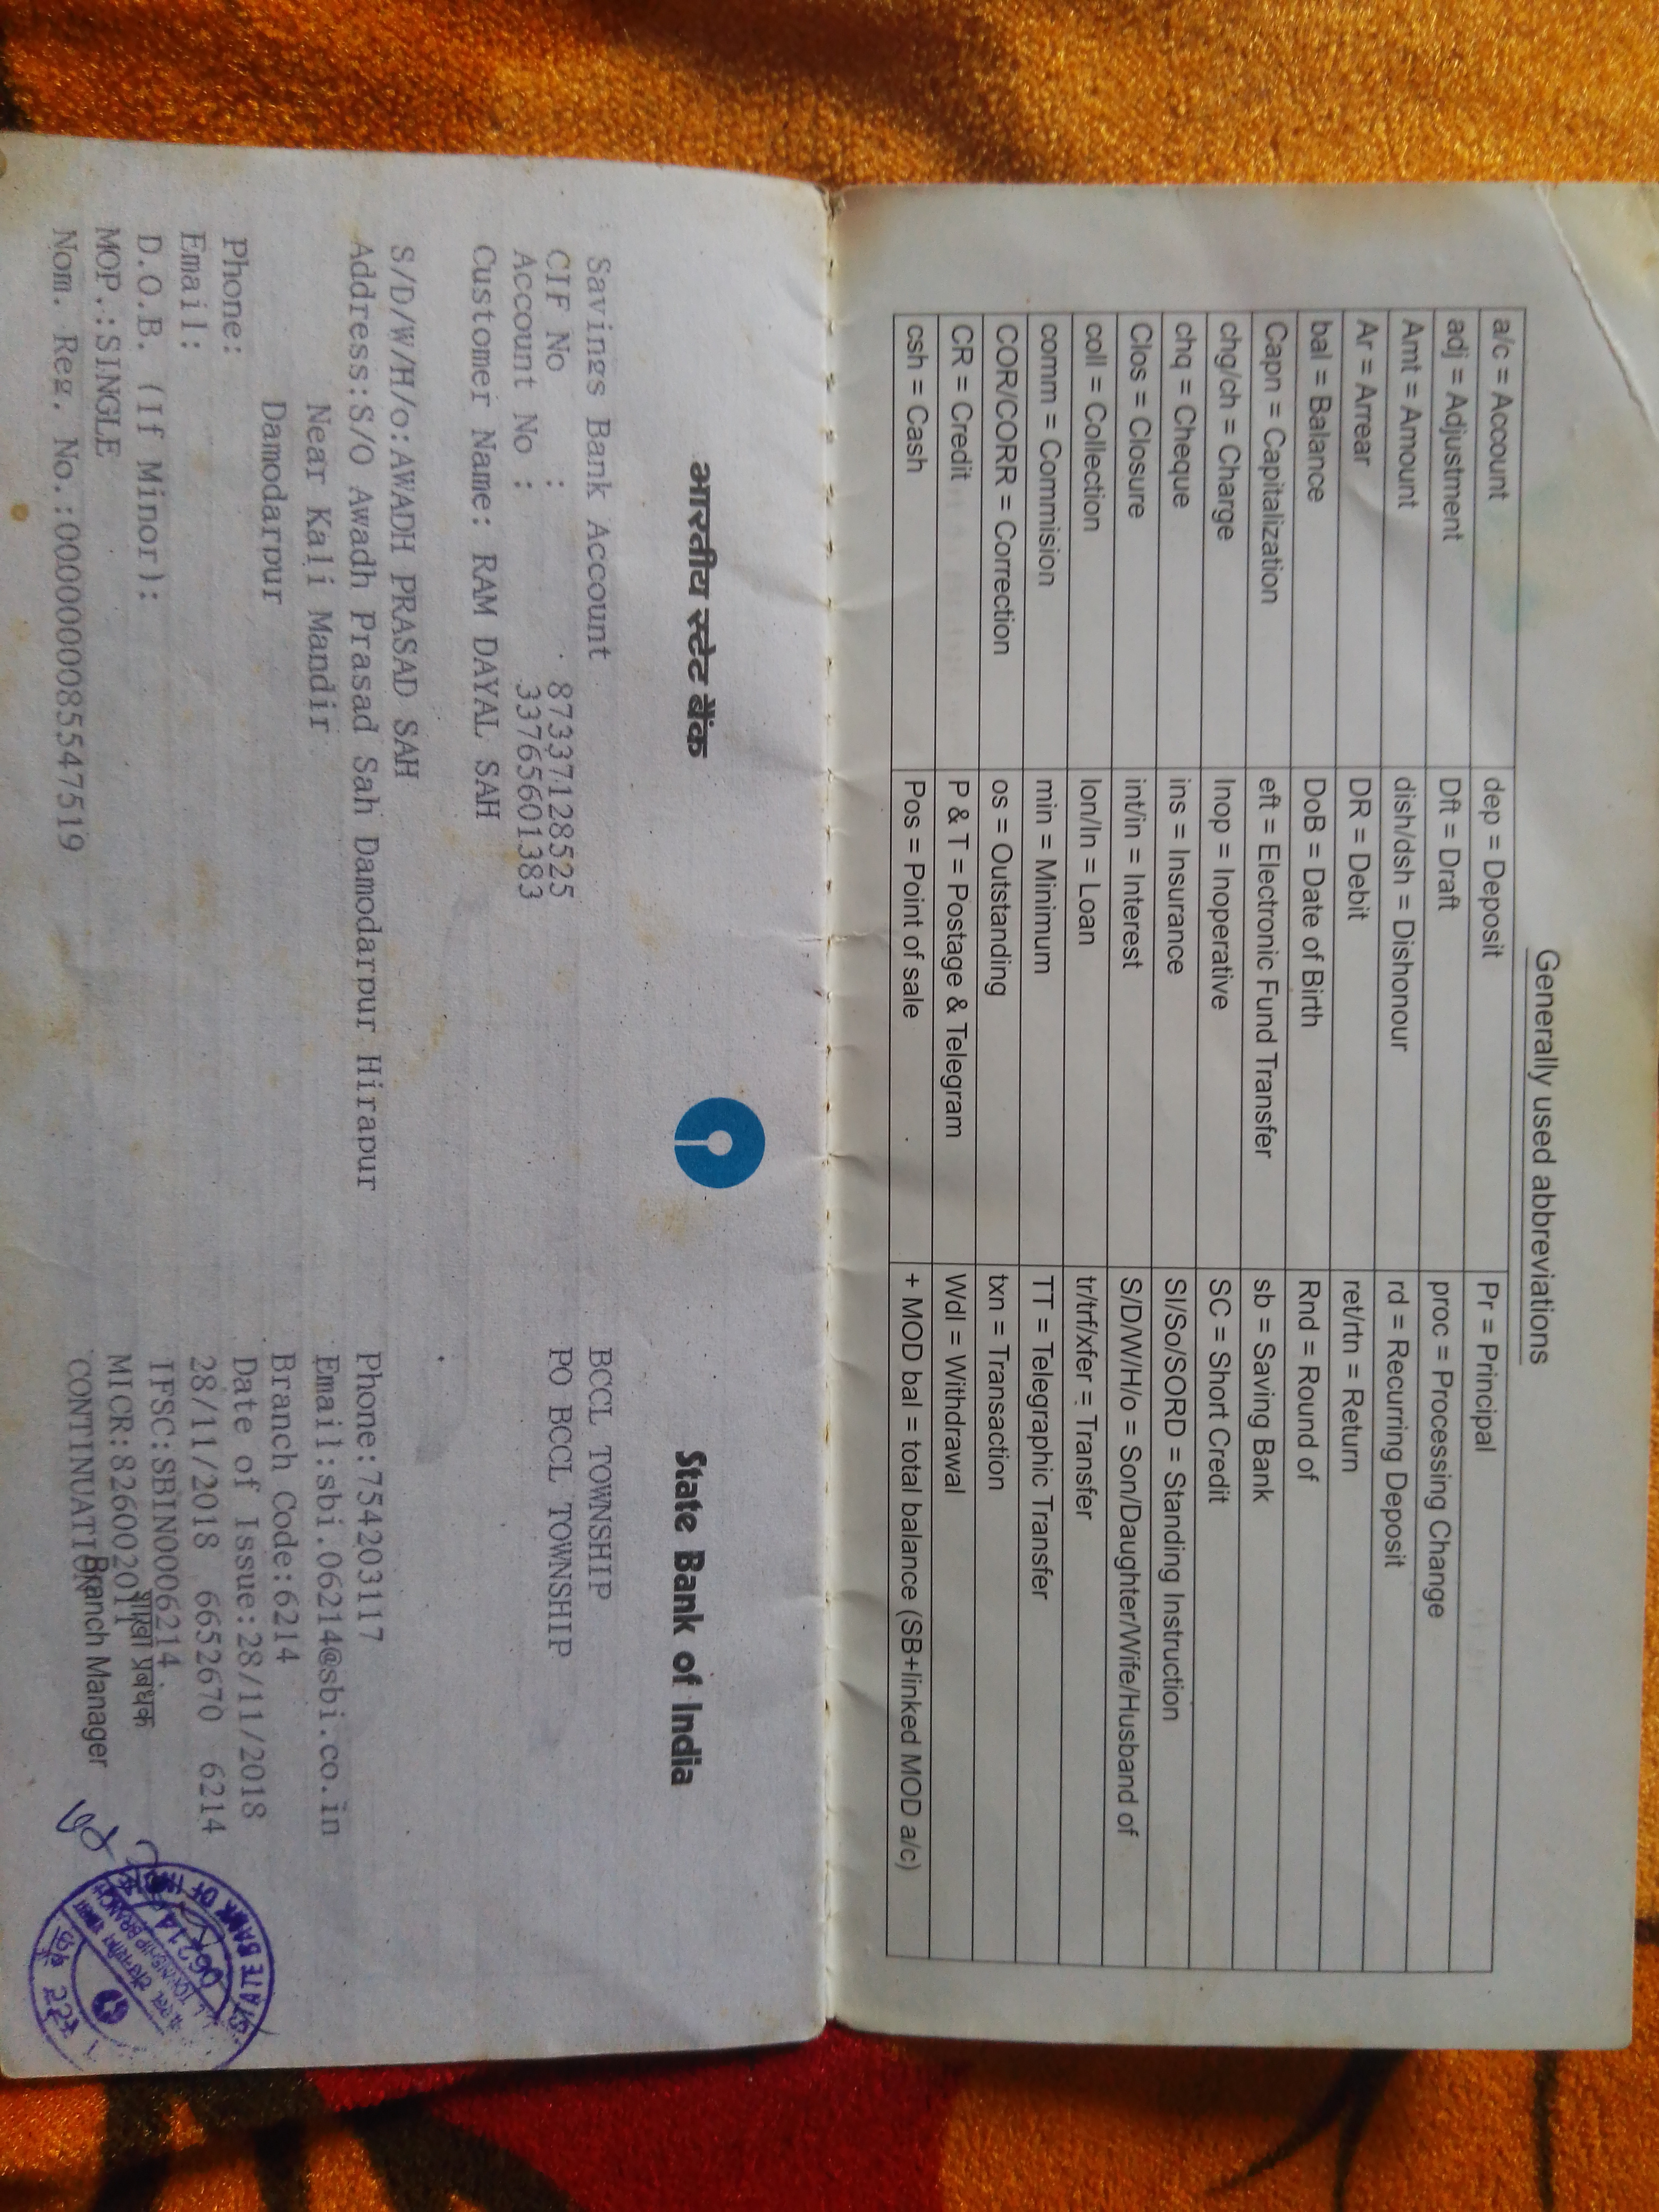 Generally used abbreviations
a/c = Account dep = Deposit Pr = Principal
adj = Adjustment Dft = Draft proc = Processing Change
Amt = Amount dish/dsh = Dishonour rd = Recurring Deposit
Ar = Arrear DR = Debit ret/rtn = Return
bal = Balance DoB = Date of Birth Rnd = Round of
Capn = Capitalization eft = Electronic Fund Transfer sb = Saving Bank
chg/ch = Charge Inop = Inoperative SC = Short Credit
chq = Cheque ins = Insurance SI/So/SORD = Standing Instruction
Clos = Closure int/in = Interest S/D/W/H/o = Son/Daughter/Wife/Husband of
coll = Collection lon/ln = Loan tr/trf/xfer = Transfer
comm = Commision min = Minimum TT = Telegraphic Transfer
COR/CORR = Correction os = Outstanding txn = Transaction
CR = Credit P & T = Postage & Telegram Wdl = Withdrawal
csh = Cash Pos = Point of sale + MOD bal = total balance (SB+linked MOD a/c)
भारतीय स्टेट बैंक State Bank of India
Savings Bank Account BCCL TOWNSHIP
CIF No : 87337128525 PO BCCL TOWNSHIP
Account No : 33765601383
Customer Name: RAM DAYAL SAH
S/D/W/H/o:AWADH PRASAD SAH
Address:S/O Awadh Prasad Sah Damodarpur Hirapur Phone:754203117
Near Kali Mandir Email:sbi.06214@sbi.co.in
Damodarpur Branch Code:6214
Phone: Date of Issue:28/11/2018
Email: 28/11/2018 6652670 6214
D.O.B. (If Minor): IFSC:SBIN0006214
शाखा प्रबंधक
MOP.:SINGLE MICR:826002011
Branch Manager
Nom. Reg. No.:0000000085547519 CONTINUATION
STATE BANK OF
06214
TOWNSHIP BRANCH